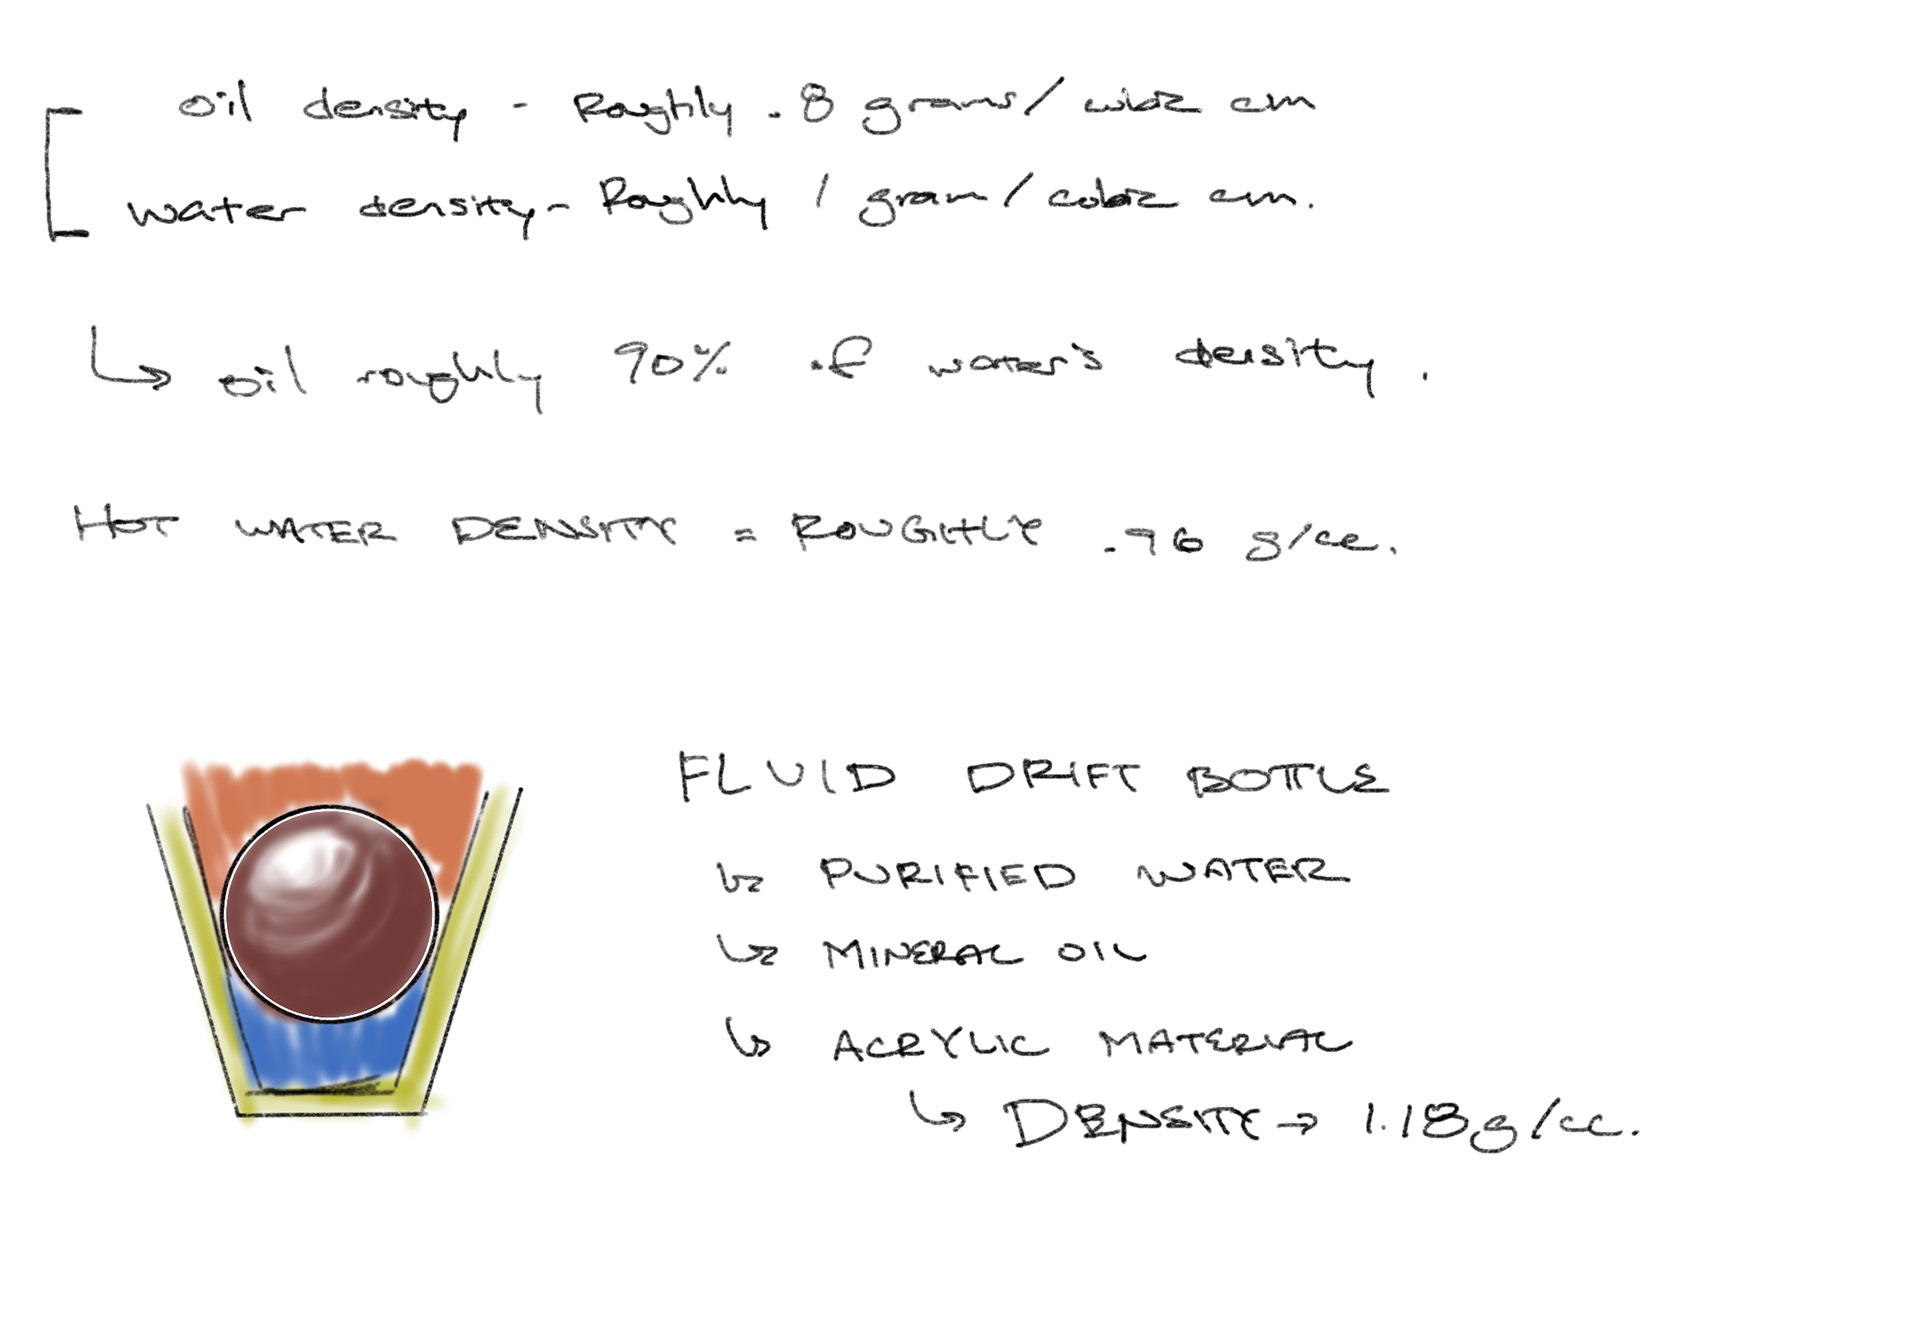 oil density - Roughly .8 grams/cubic cm
water density - Roughly 1 gram/cubic cm.
↳ oil roughly 90% of water's density.
HOT WATER DENSITY = ROUGHLY .96 g/cc.
FLUID DRIFT BOTTLE
↳ PURIFIED WATER
↳ MINERAL OIL
↳ ACRYLIC MATERIAL
↳ DENSITY → 1.18g/cc.